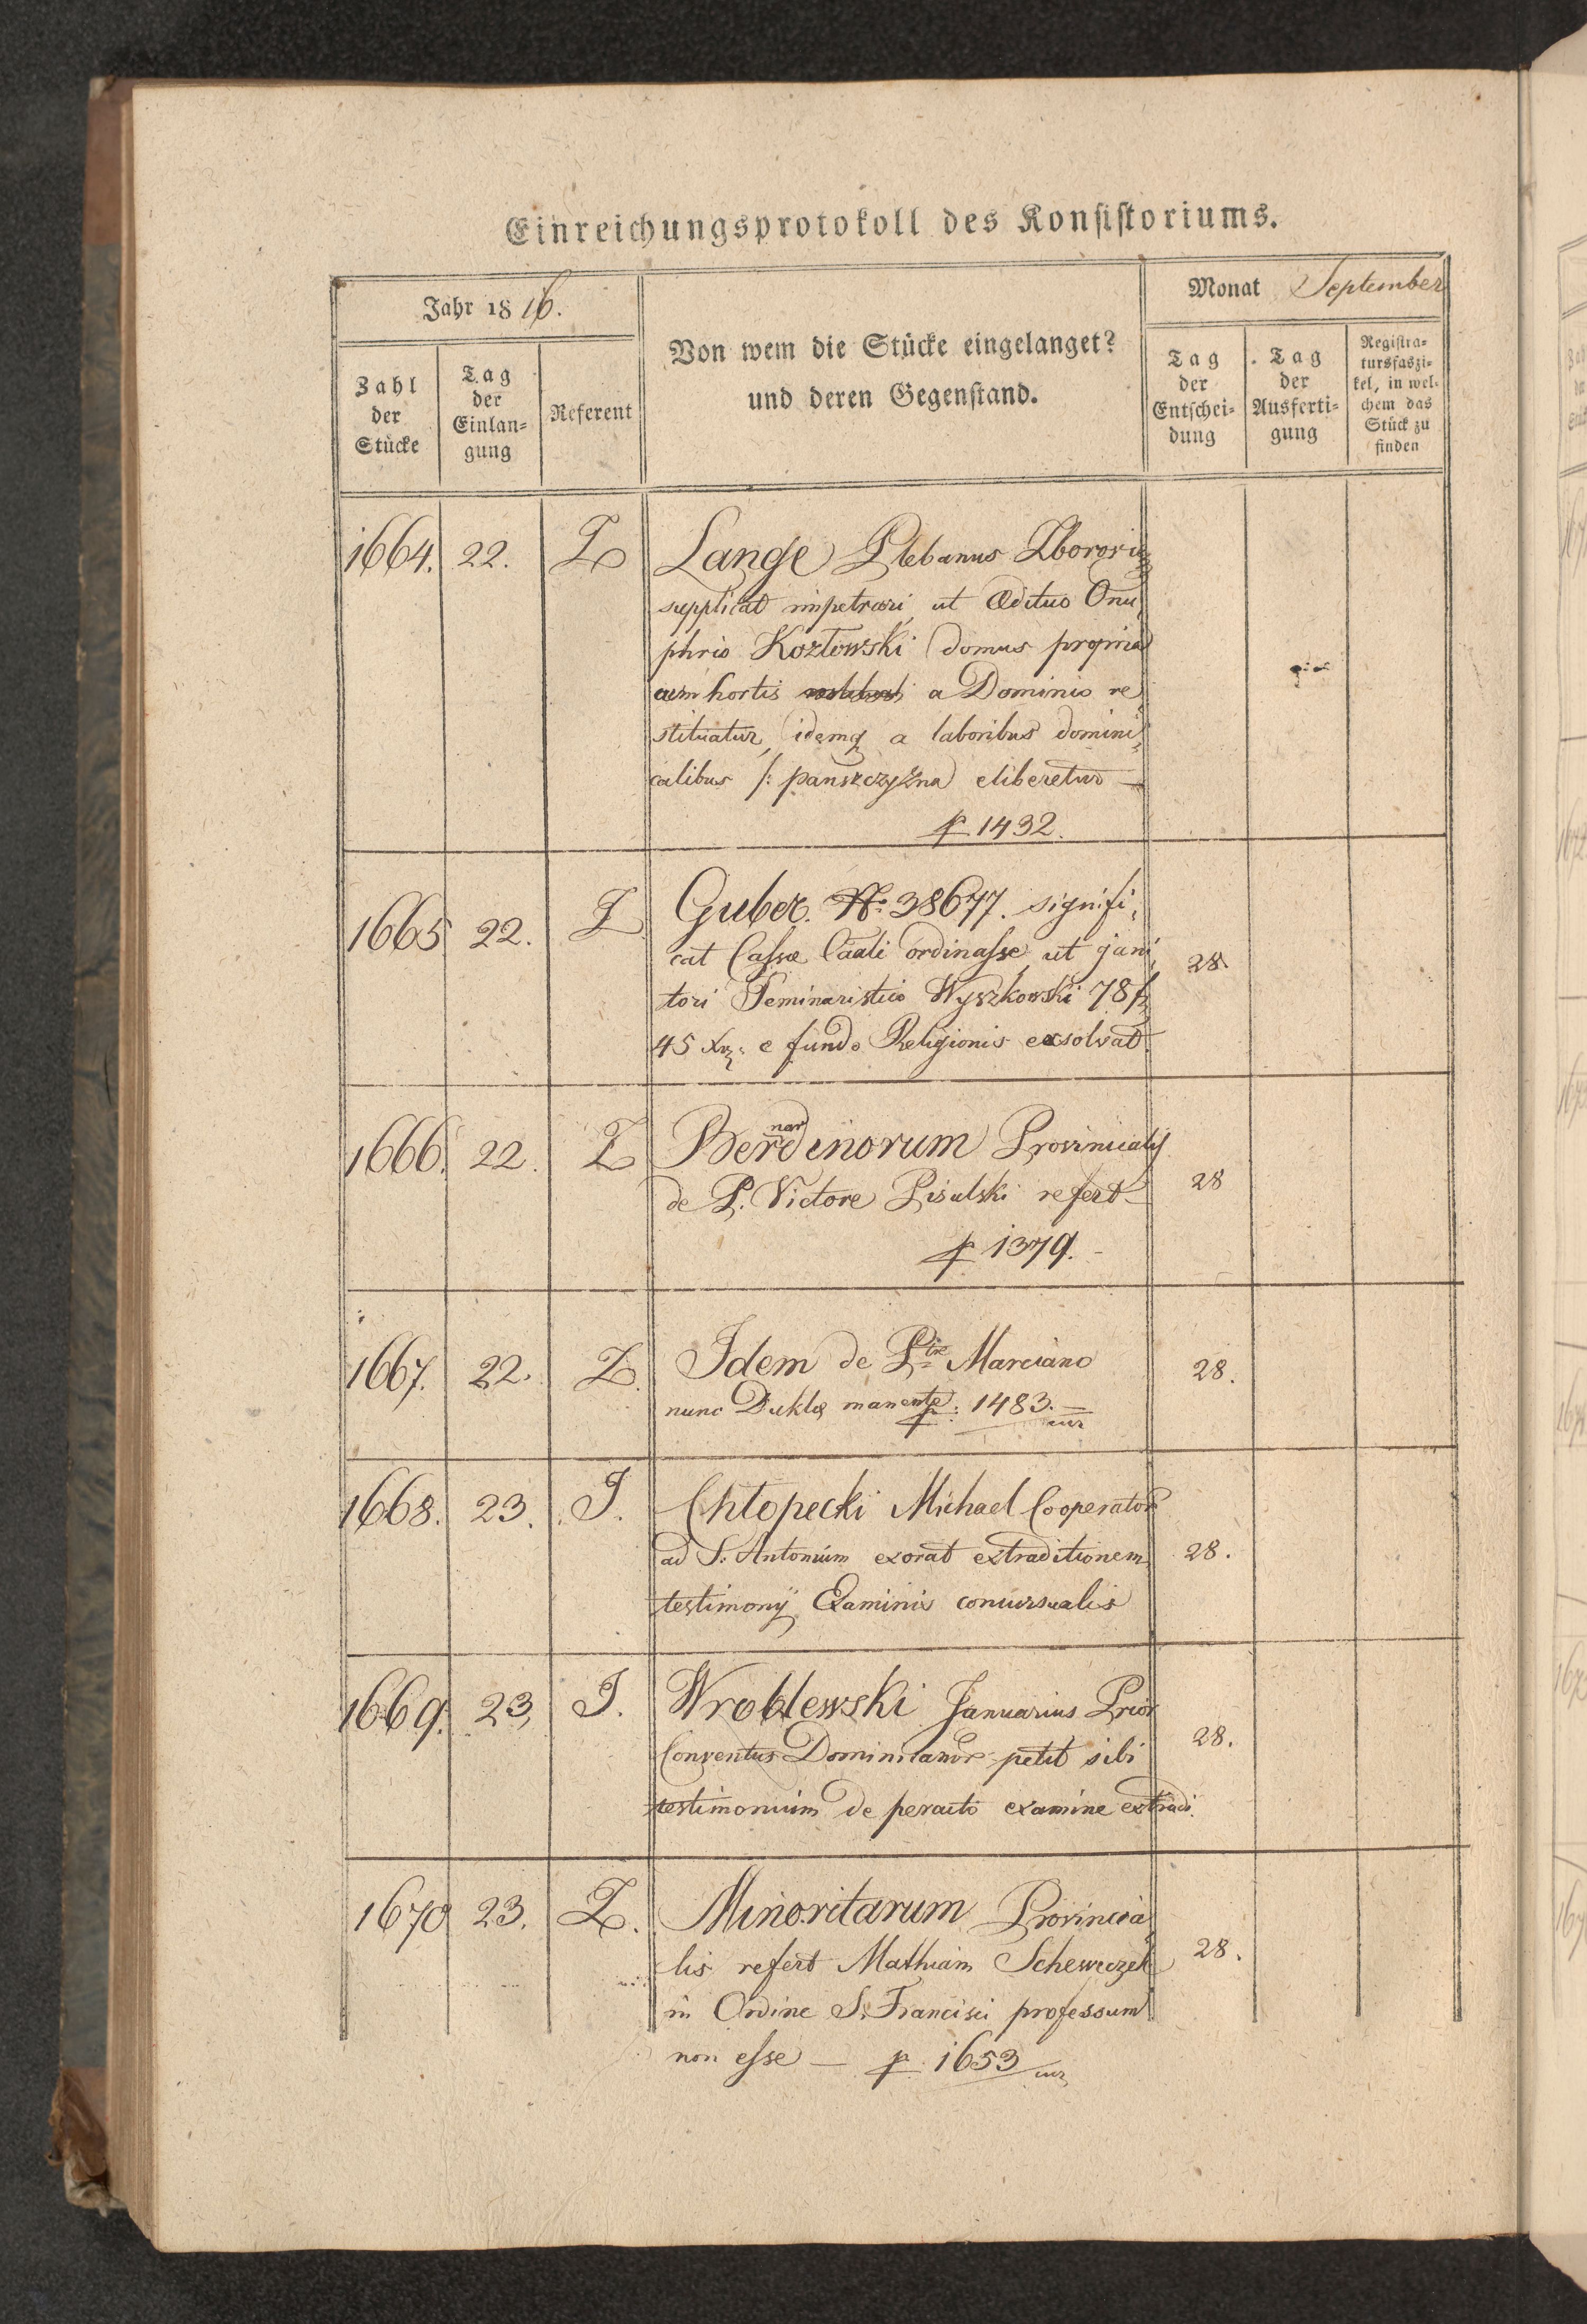 Einreichungsprotokoll des Konsistoriums.
Jahr 1816.
Monat September
Zahl der Stücke
Tag der Einlangung
Referent
Von wem die Stücke eingelanget?
und deren Gegenstand.
Tag der Entscheidung
Tag der Ausfertigung
Registratursfaszikel, in welchem das Stück zu finden
1664. 22. Z Lange Plebanus
supplicat impetrari, ut Ædituo Onu„
phrio Kozłowski domus propria
cum hortis a Dominio re„
stituatur, idemq a laboribus domini„
calibus /: panszczyzna eliberetur —
p 1432.
1665 22. Z Guber. N: 38677. signifi„
cat Cassæ Caali ordinasse, ut jani„ 28.
tori Seminaristico Wyszkowski 78 f
45 xr: e fundo Religionis exsolvat.
1666. 22. Z Bernardinorum Provincialis
de P. Victore Pisulski refert 28
p 1379.
1667. 22. Z. Idem de Ptre Marciano 28.
nunc Duklæ manente p: 1483. —
1668. 23. J. Chłopecki Michael Cooperator
ad S: Antonium exorat extraditionem 28.
testimonÿ Examinis concursualis
1669. 23, J. Wroblewski Januarius Prior
Conventus Dominicanor petit sibi 28.
testimonium de peracto examine extradi.
1670 23. Z. Minoritarum Provincia„
lis refert Mathiam Schewczek 28.
in Ordine S. Francisci professum
non esse — p. 1653